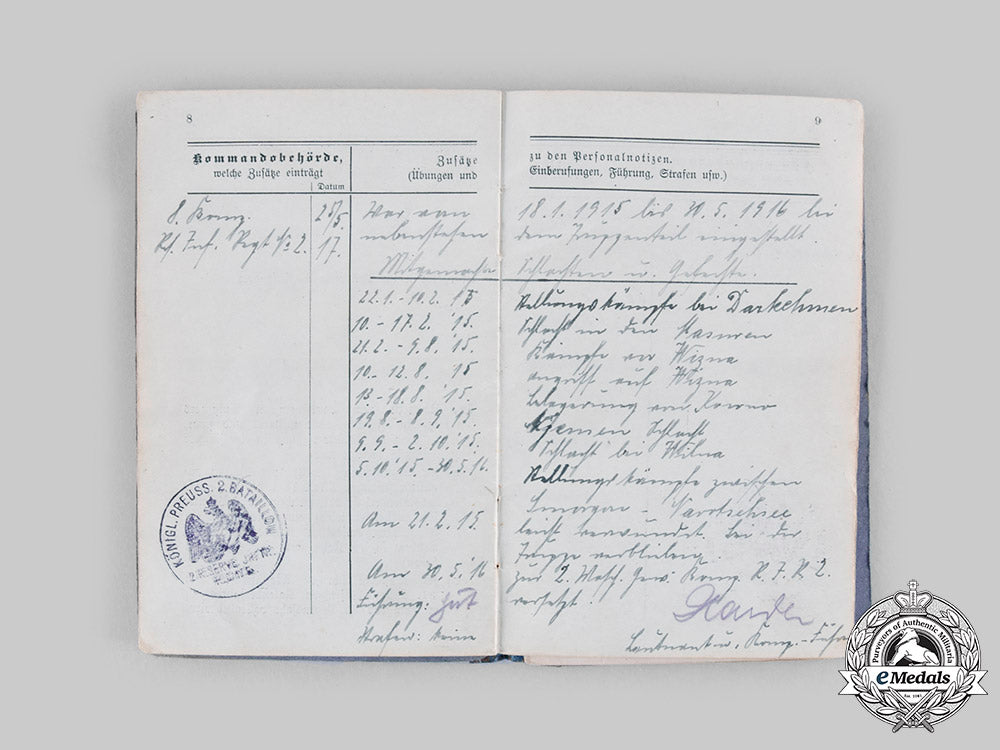 8
Kommandobehörde,
welche Zusätze einträgt
Datum
Zusätze
(Übungen und
8. Komp.
25/5.
Rs. Inf. Regt No 2.
17.
War vom
nebenstehen
Mitgemachte
22.1.-10.2. 15
10.-17.2. '15.
21.2.-9.8. '15.
10.-12.8. 15
13.-18.8. '15.
19.8.-8.9. '15.
9.9.-2.10.'15.
5.10.'15.-30.5.16.
Am 21.2.15
Am 30.5.16
Führung: gut
Strafen: keine
KÖNIGL. PREUSS. 2. BATAILLON
2. RESERVE
9
zu den Personalnotizen.
Einberufungen, Führung, Strafen usw.)
18.1.1915 bis 30.5.1916 bei
dem Truppenteil eingestellt.
Schlachten u. Gefechte.
Stellungskämpfe bei Darkehmen
Schlacht in den Masuren
Kämpfe vor Wizna
Angriff auf Wizna
Belagerung von Kowno
Njemen Schlacht
Schlacht bei Wilna
Stellungskämpfe zwischen
Smorgon - Narotschsee
leicht verwundet. bei der
Truppe verblieben.
zur 2. Masch. Gew. Komp. R.I.R. 2.
versetzt.
Leutnant u. Komp.-Führer
Purveyors of Authentic Militaria
eMedals